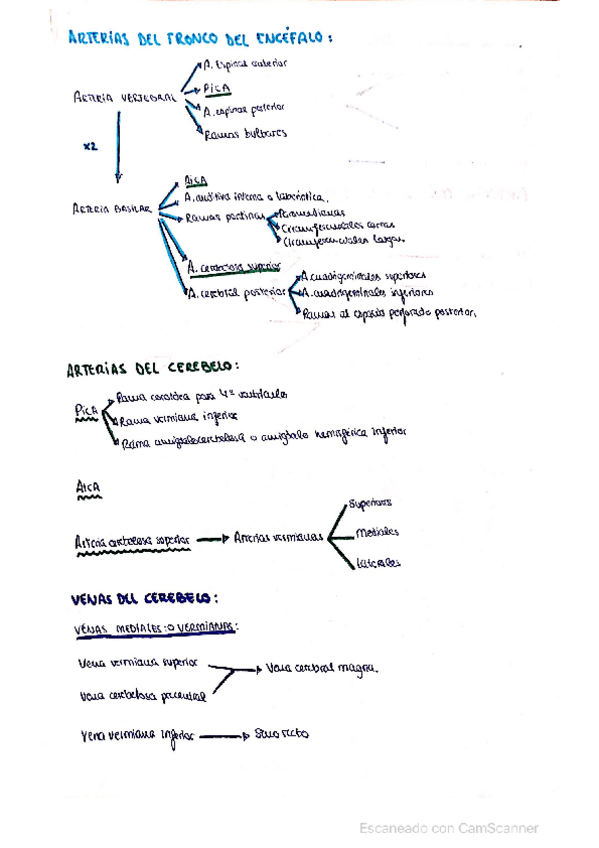 ARTERIAS DEL TRONCO DEL ENCÉFALO:
A. Espinal anterior
PICA
ARTERIA VERTEBRAL
A. espinal posterior
Ramas bulbares
x2
AICA
A. auditiva interna o laberíntica.
ARTERIA BASILAR
Ramas pontinas
Paramedianas
Circunferenciales cortas
Circunferenciales largas.
A. cerebelosa superior
A. cerebral posterior
A. cuadrigeminales superiores
A. cuadrigeminales inferiores
Ramas al espacio perforado posterior.
ARTERIAS DEL CEREBELO:
PICA
Rama coroidea para 4º ventrículo
Rama vermiana inferior
Rama amigdalocerebelosa o amígdalo hemisférica inferior
AICA
Arteria cerebelosa superior
Arterias vermianas
Superiores
Mediales
Laterales
VENAS DEL CEREBELO:
VENAS MEDIALES O VERMIANAS:
Vena vermiana superior
Vena cerebral magna.
Vena cerebelosa precentral
Vena vermiana inferior
Seno recto
Escaneado con CamScanner